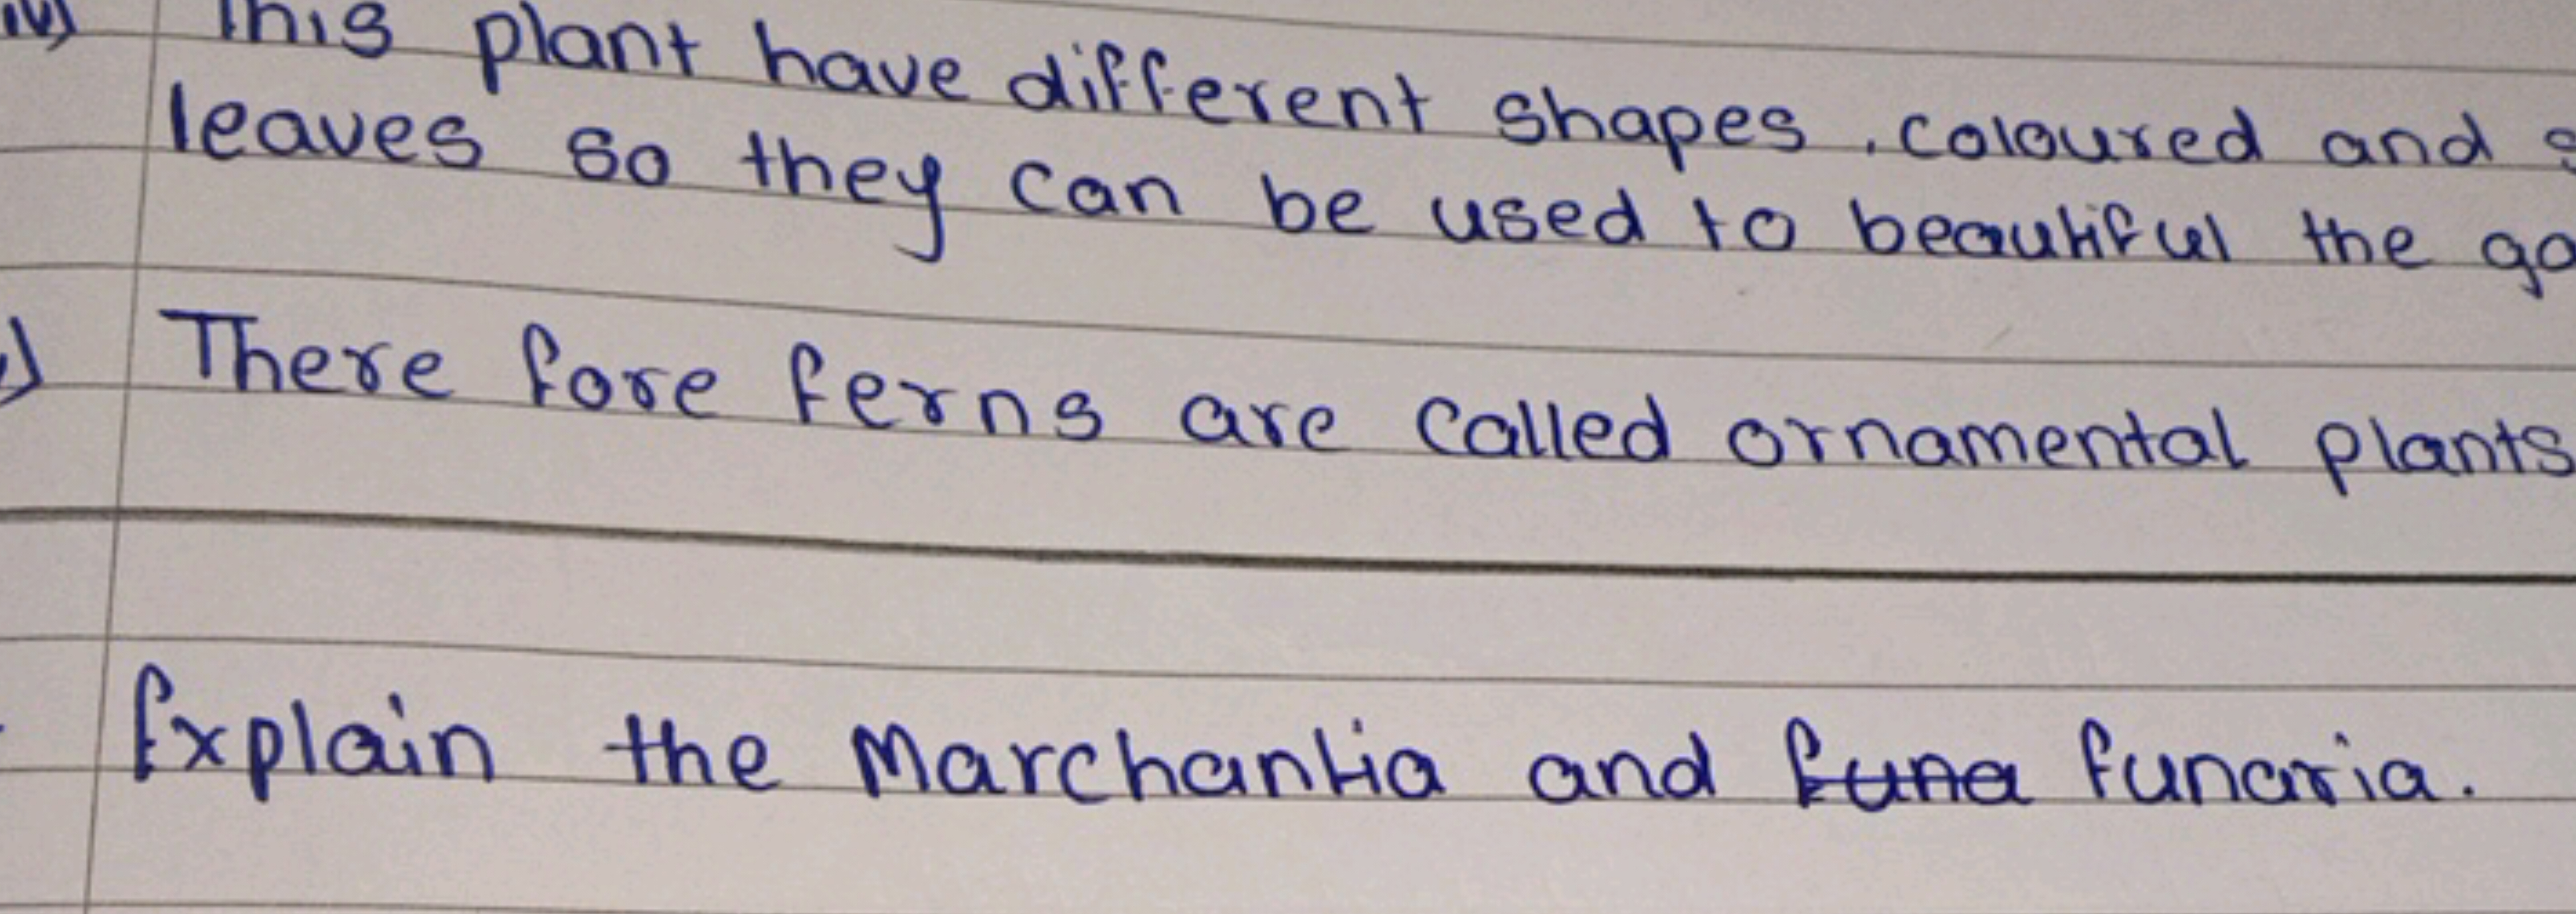 iv) This plant have different shapes, coloured and
leaves so they can be used to beautiful the
There fore ferns are called ornamental plants
Explain the Marchantia and funa funaria.